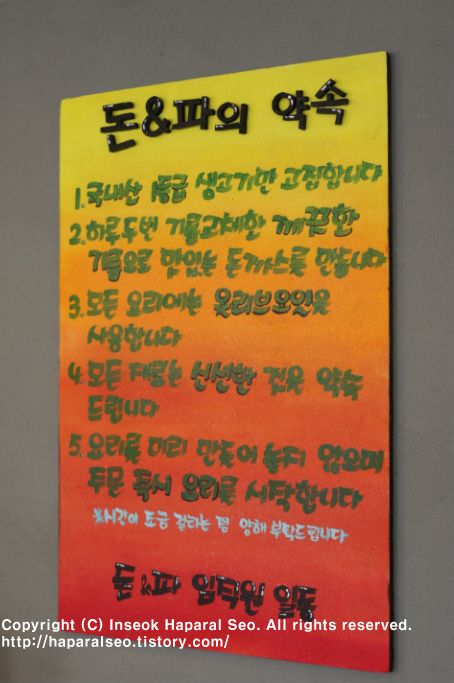 돈&파의 약속
1. 국내산 1등급 생고기만 고집합니다
2. 하루두번 기름교체한 깨끗한
기름으로 맛있는 돈까스를 만듭니다
3. 모든 요리에는 올리브오일을
사용합니다
4. 모든 재료는 신선한 것을 약속
드립니다
5. 요리를 미리 만들어 놓지 않으며
주문 즉시 요리를 시작합니다
※시간이 조금 걸리는 점 양해 부탁드립니다
돈&파 임직원 일동
Copyright (C) Inseok Haparal Seo. All rights reserved.
http://haparalseo.tistory.com/